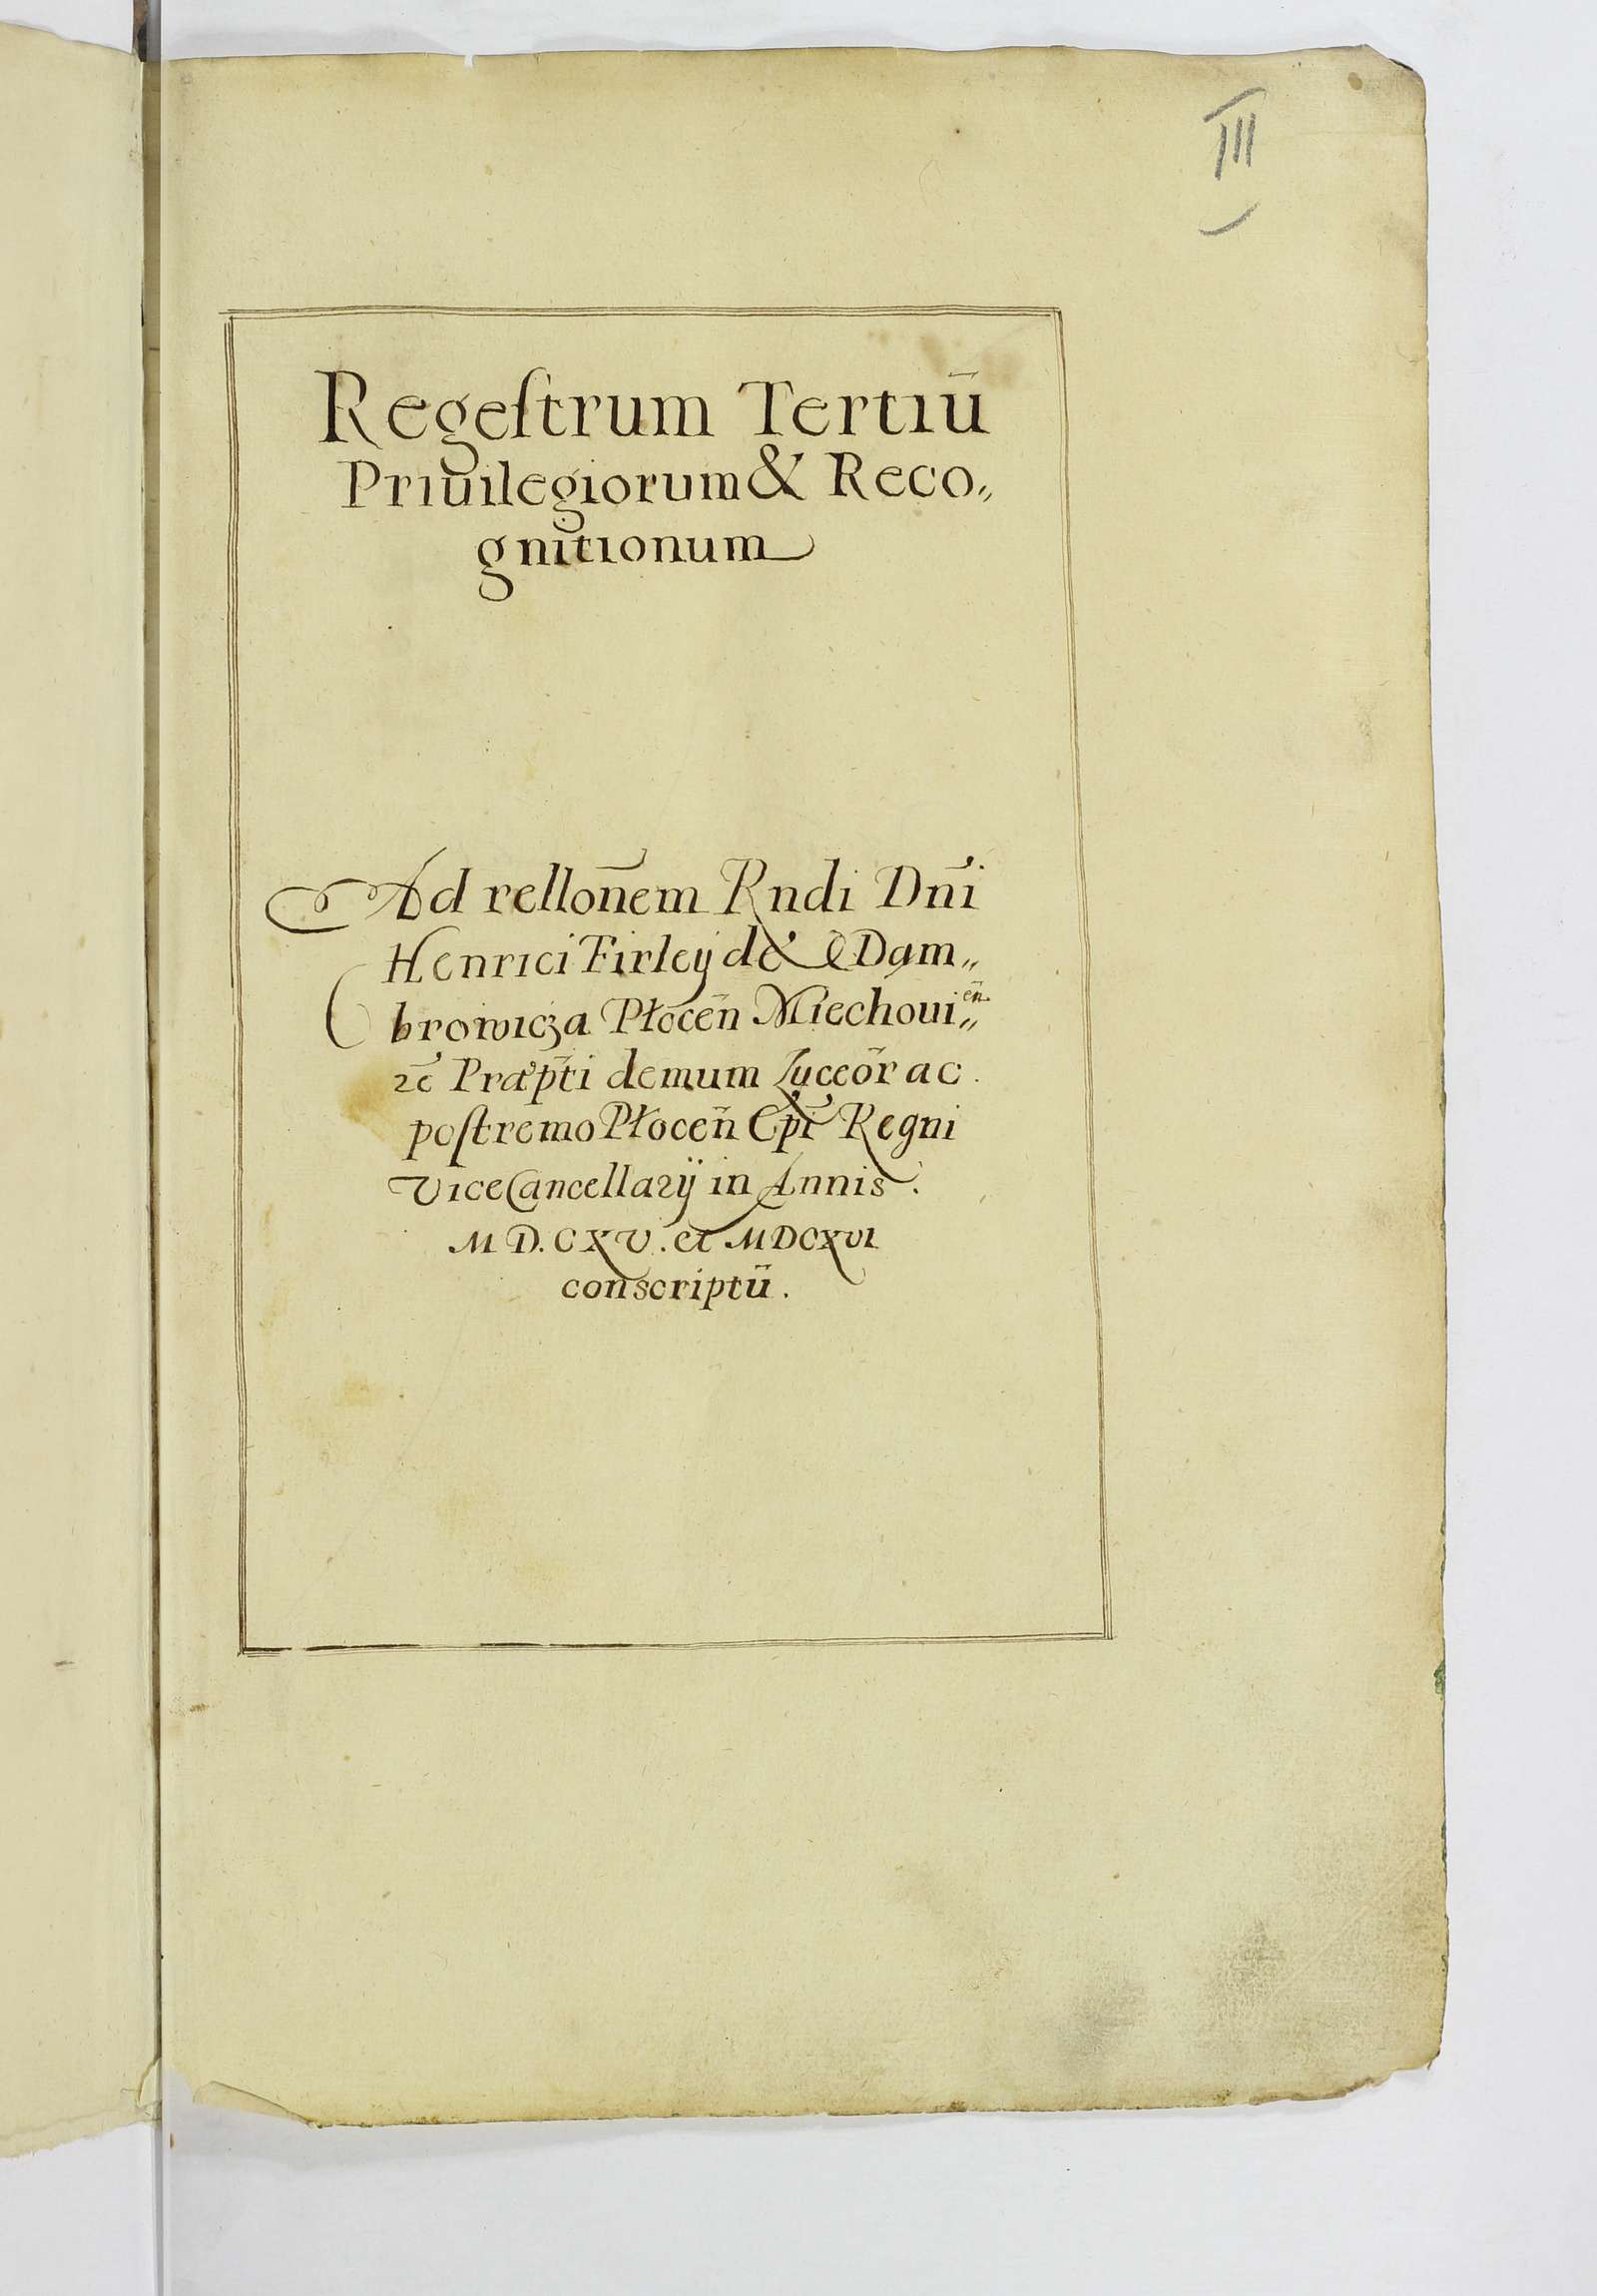 III
Regeſtrum Tertiū
Priuilegiorum & Reco„
gnitionum
Ad rellon̄em Rndi Dn̄i
Henrici Firleÿ de Dąm„
browicza Płocen̄ Miechoui„en̄
ꝛc̄ Præp̄ti demum Luceōr ac.
poſtremo Płocen̄ Ep̄i Regni
ViceCancellarÿ in Annis.
M D. C X V. et MDCXVI
conscriptū.